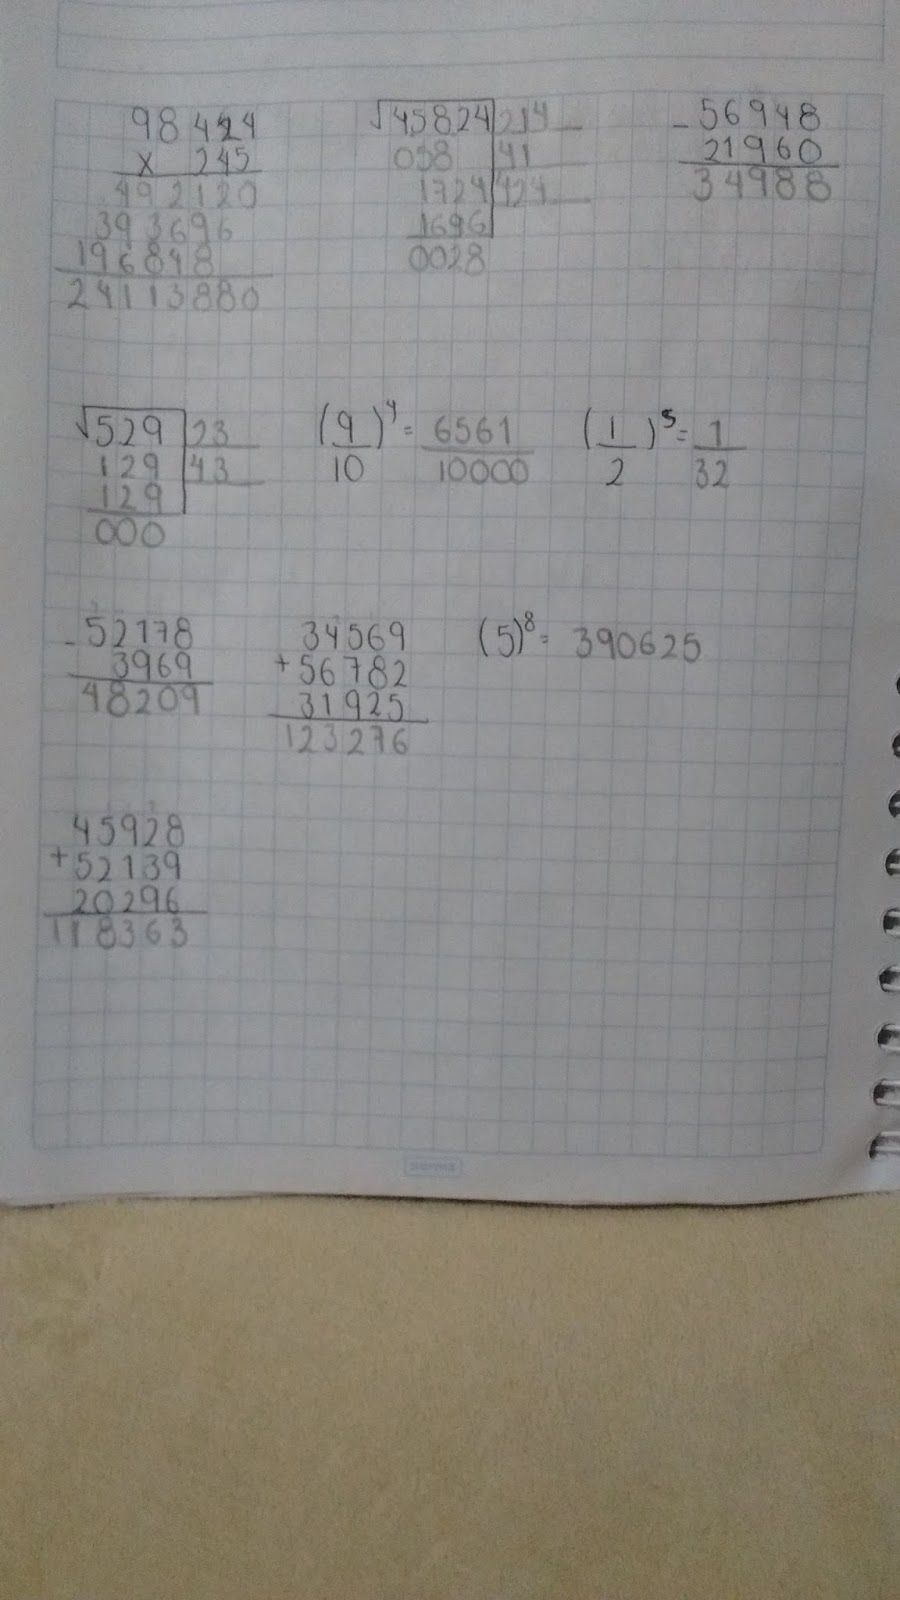 98424
x 245
492120
393696
196848
24113880
√45824 214
058 41
1724 424
1696
0028
- 56948
21960
34988
√529 23
129 43
129
000
(9/10)⁴ = 6561/10000
(1/2)⁵ = 1/32
- 52178
3969
48209
34569
+ 56782
31925
123276
(5)⁸ = 390625
45928
+ 52139
20296
118363